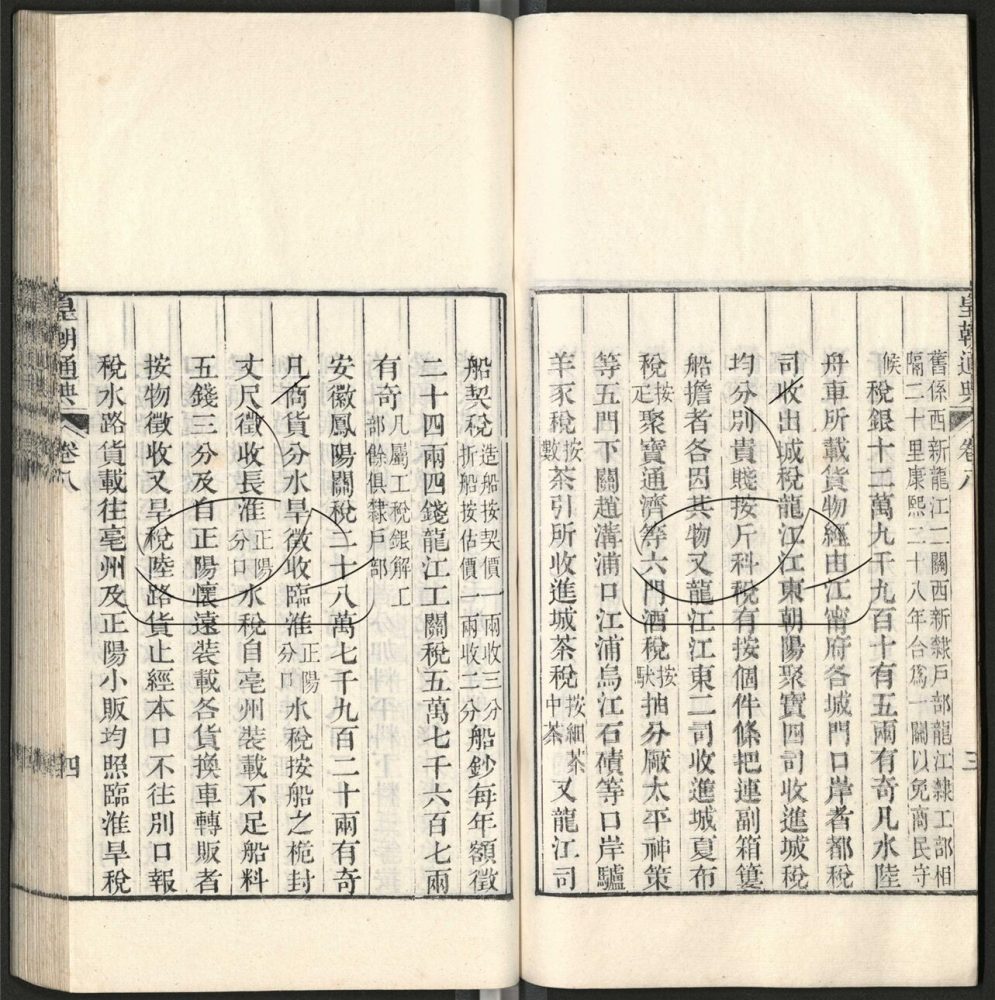 皇朝通典 卷八 三
舊係西新龍江二關西新隸戶部龍江隸工部相
隔二十里康熙二十八年合爲一關以免商民守
候稅銀十二萬九千九百十有五兩有奇凡水陸
舟車所載貨物經由江甯府各城門口岸者都稅
司收出城稅龍江江東朝陽聚寶四司收進城稅
均分別貴賤按斤科稅有按個件條把連副箱簍
船擔者各因其物又龍江江東二司收進城夏布
稅按疋聚寶通濟等六門酒稅按抽分厰太平神策
等五門下關趙溝浦口江浦烏江石磧等口岸驢
羊豕稅按數茶引所收進城茶稅按細茶中茶又龍江司
船契稅造船按契價一兩收三分折船按估價一兩收二分船鈔每年額徵
二十四兩四錢龍江工關稅五萬七千六百七兩
有奇凡屬工稅銀解工部餘俱隸戶部
安徽鳳陽關稅二十八萬七千九百二十兩有奇
凡商貨分水旱徵收臨淮正陽分口水稅按船之桅封
丈尺徵收長淮正陽分口水稅自亳州裝載不足船料
五錢三分及自正陽懷遠裝載各貨換車轉販者
按物徵收又旱稅陸路貨止經本口不往別口報
稅水路貨載往亳州及正陽小販均照臨淮旱稅
皇朝通典 卷八 四